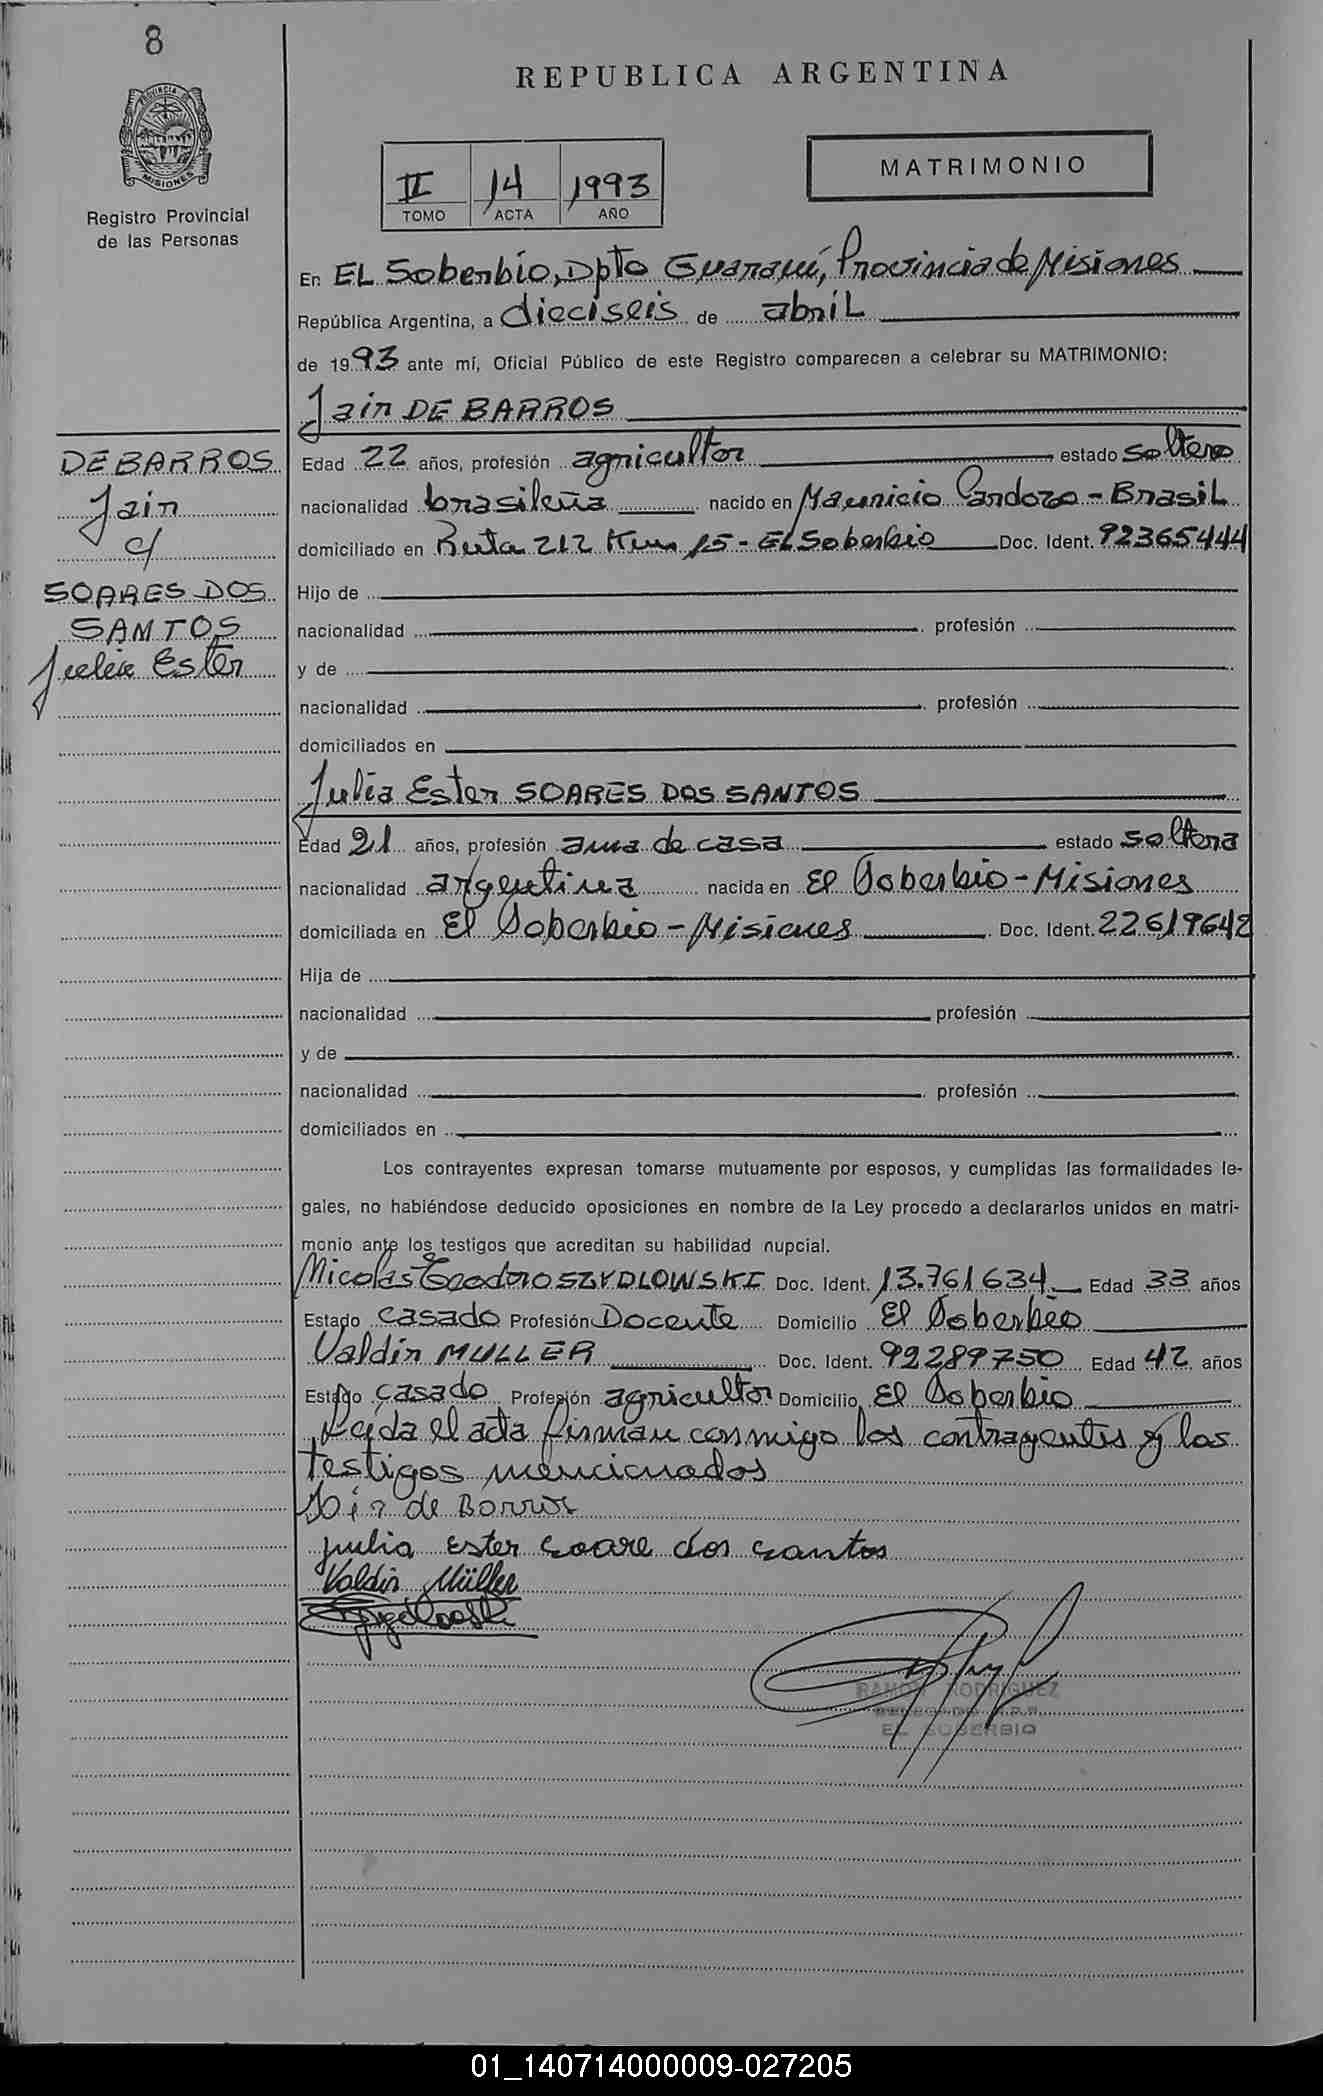 8
PROVINCIA DE
MISIONES
Registro Provincial
de las Personas
REPUBLICA ARGENTINA
II 14 1993
TOMO ACTA AÑO
MATRIMONIO
En EL Soberbio, Dpto Guaraní, Provincia de Misiones
República Argentina, a dieciseis de abril
de 1993 ante mí, Oficial Público de este Registro comparecen a celebrar su MATRIMONIO:
Jair DE BARROS
DE BARROS
Jair
c/
SOARES DOS
SANTOS
Julia Ester
Edad 22 años, profesión agricultor estado soltero
nacionalidad brasileña nacido en Mauricio Cardozo - Brasil
domiciliado en Ruta 212 Km 15 - El Soberbio Doc. Ident. 92365444
Hijo de
nacionalidad profesión
y de
nacionalidad profesión
domiciliados en
Julia Ester SOARES DOS SANTOS
Edad 21 años, profesión ama de casa estado soltera
nacionalidad argentina nacida en El Soberbio - Misiones
domiciliada en El Soberbio - Misiones Doc. Ident. 22619642
Hija de
nacionalidad profesión
y de
nacionalidad profesión
domiciliados en
Los contrayentes expresan tomarse mutuamente por esposos, y cumplidas las formalidades le-
gales, no habiéndose deducido oposiciones en nombre de la Ley procedo a declararlos unidos en matri-
monio ante los testigos que acreditan su habilidad nupcial.
Nicolas Teodoro SZYDLOWSKI Doc. Ident. 13.761.634 Edad 33 años
Estado casado Profesión Docente Domicilio El Soberbio
Valdir MULLER Doc. Ident. 92289750 Edad 42 años
Estado casado Profesión agricultor Domicilio El Soberbio
Leida el acta firman conmigo los contrayentes y los
testigos mencionados
de Borros
julia Ester soare dos santos
Valdir Müller
RAMON RODRIGUEZ
DELEGADO R.P.P.
EL SOBERBIO
01_140714000009-027205